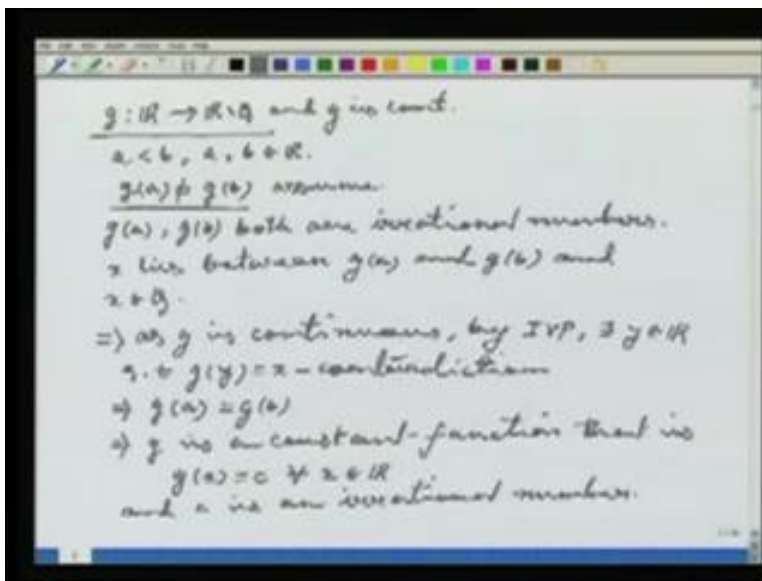 g : ℝ → ℝ\ℚ and g is cont.
a < b, a, b ∈ ℝ.
g(a) ≠ g(b) assume
g(a), g(b) both are irrational numbers.
x lies between g(a) and g(b) and
x ∈ ℚ.
⇒ as g is continuous, by IVP, ∃ y ∈ ℝ
s.t g(y) = x - contradiction
⇒ g(a) = g(b)
⇒ g is a constant function that is
g(x) = c ∀ x ∈ ℝ
and c is an irrational number.